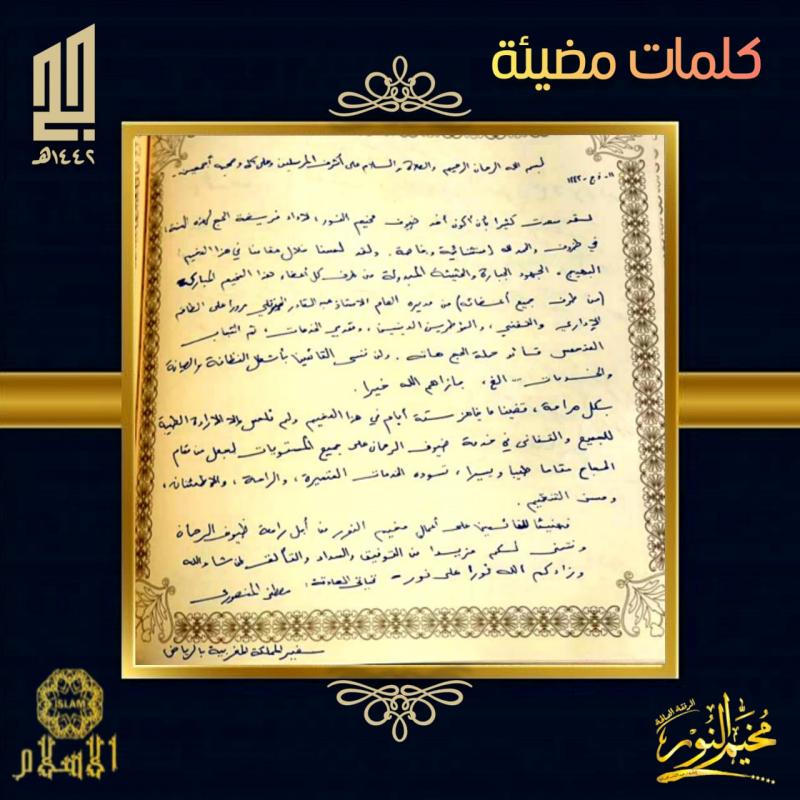 كلمات مضيئة
١٤٤٢هـ
بسم الله الرحمان الرحيم والصلاة والسلام على أشرف المرسلين وعلى آله وصحبه أجمعين.
لقد سعدت كثيرا بأن أكون أحد ضيوف مخيم النور، لأداء فريضة الحج لهذه السنة،
في ظروف استثنائية وخاصة. ولقد لمسنا خلال مقامنا في هذا المخيم
البهيج، الجهود الجبارة والحثيثة المبذولة من طرف كل أعضاء هذا المخيم المبارك
(من طرف جميع أعضائه) من مديره العام الأستاذ عبد القادر مرورا على الطاقم
الإداري والتقني، والمؤطرين الدينيين، ومقدمي الخدمات، ثم الشباب
المتحمس قائد حملة الحج. ولن ننسى القائمين بأشغال النظافة والصيانة
والخدمات ... الخ، جازاهم الله خيرا.
بكل صراحة، قضينا ما يناهز ستة أيام في هذا المخيم ولم نلمس إلا الإرادة الطيبة
للجميع والتفاني في خدمة ضيوف الرحمان على جميع المستويات لجعل من مقام
الحجاج مقاما طيبا ويسيرا، تسوده الخدمات المتميزة، والراحة، والاطمئنان،
وحسن التنظيم.
فهنيئا للقائمين على أعمال مخيم النور من أجل راحة ضيوف الرحمان
ونتمنى لكم مزيدا من التوفيق والسداد والتألق إن شاء الله
وزادكم الله نورا على نور - تحياتي الصادقة: مصطفى المنصوري
سفير المملكة المغربية بالرياض
ISLAM
الإسلام
مخيم النور